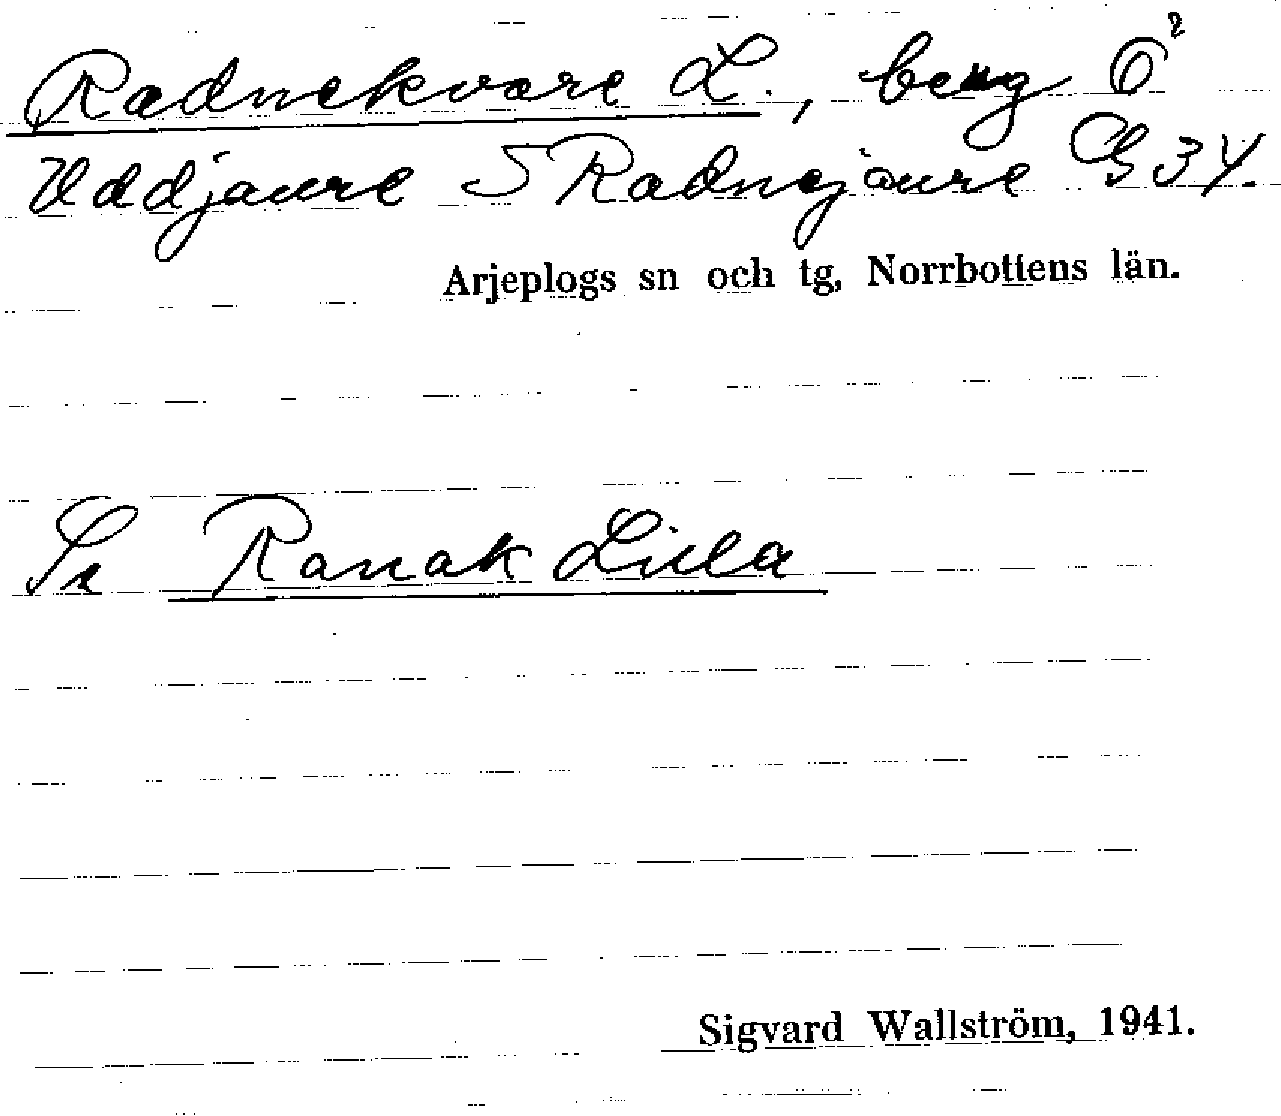 Radnekvare L., berg Ö
Uddjaure S Radnejaure G 34.
Arjeplogs sn och tg, Norrbottens län.
Se Ranak Lilla
Sigvard Wallström, 1941.